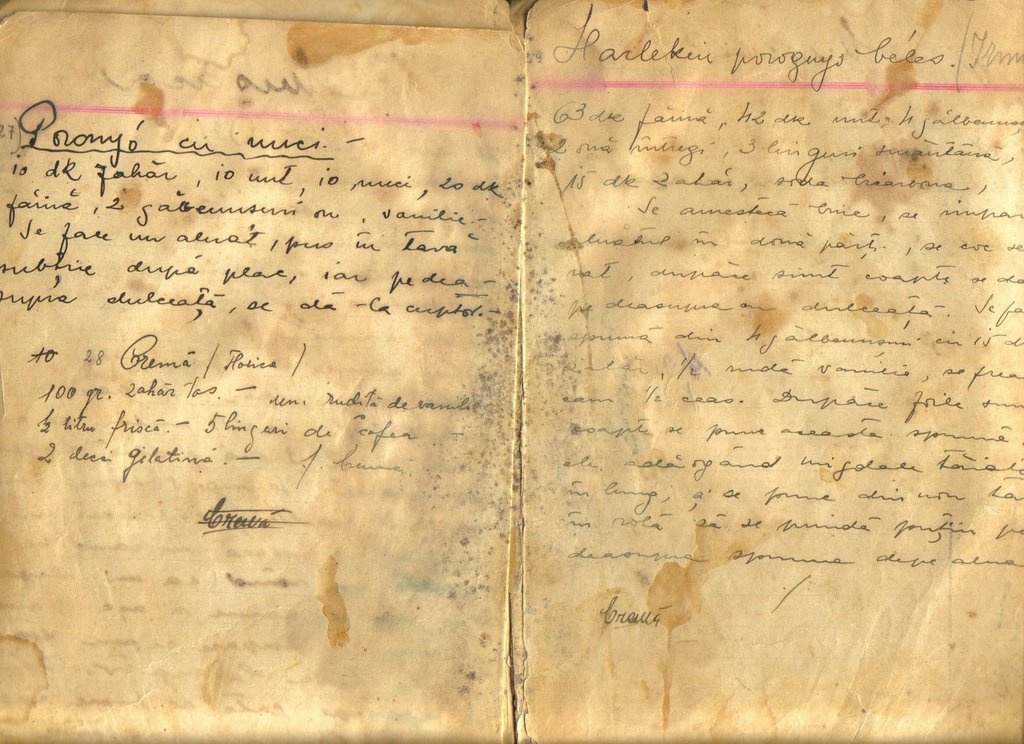 27) Poronyó cu nuci. -
10 dk zahăr, 10 unt, 10 nuci, 20 dk
făină, 2 gălbenușuri ou, vanilie. -
Se face un aluat, pus în tavă
subțire după plac, iar pe dea-
supra dulceață, se dă la cuptor. -
28 Cremă (Horica)
100 gr. zahăr tos. - una rudiță de vanilie
½ litru frișcă. - 5 linguri de cofea. -
2 deci gelatină. - f. bună.
Cremă
Harlekin porognyo béles. (Irm
63 dk făină, 42 dk unt, 4 gălbenuș
2 ouă întregi, 3 linguri smântână,
15 dk zahăr, soda bicarbona,
Se amestecă bine, se impar
aluatul în două părți, se coc se
rat, dupăce sunt coapte se dă
pe deasupra cu dulceață. Se fa
spumă din 4 gălbenușuri cu 15 d
zahăr, ½ rudă vanilie, se frea
cam ½ ceas. Dupăce foile sun
coapte se pune aceasta spumă
ele, adăogând migdale tăiat
în lung, și se pune din nou
în rolă să se prindă puțin pe
deasupra spuma depe alua
Cremă